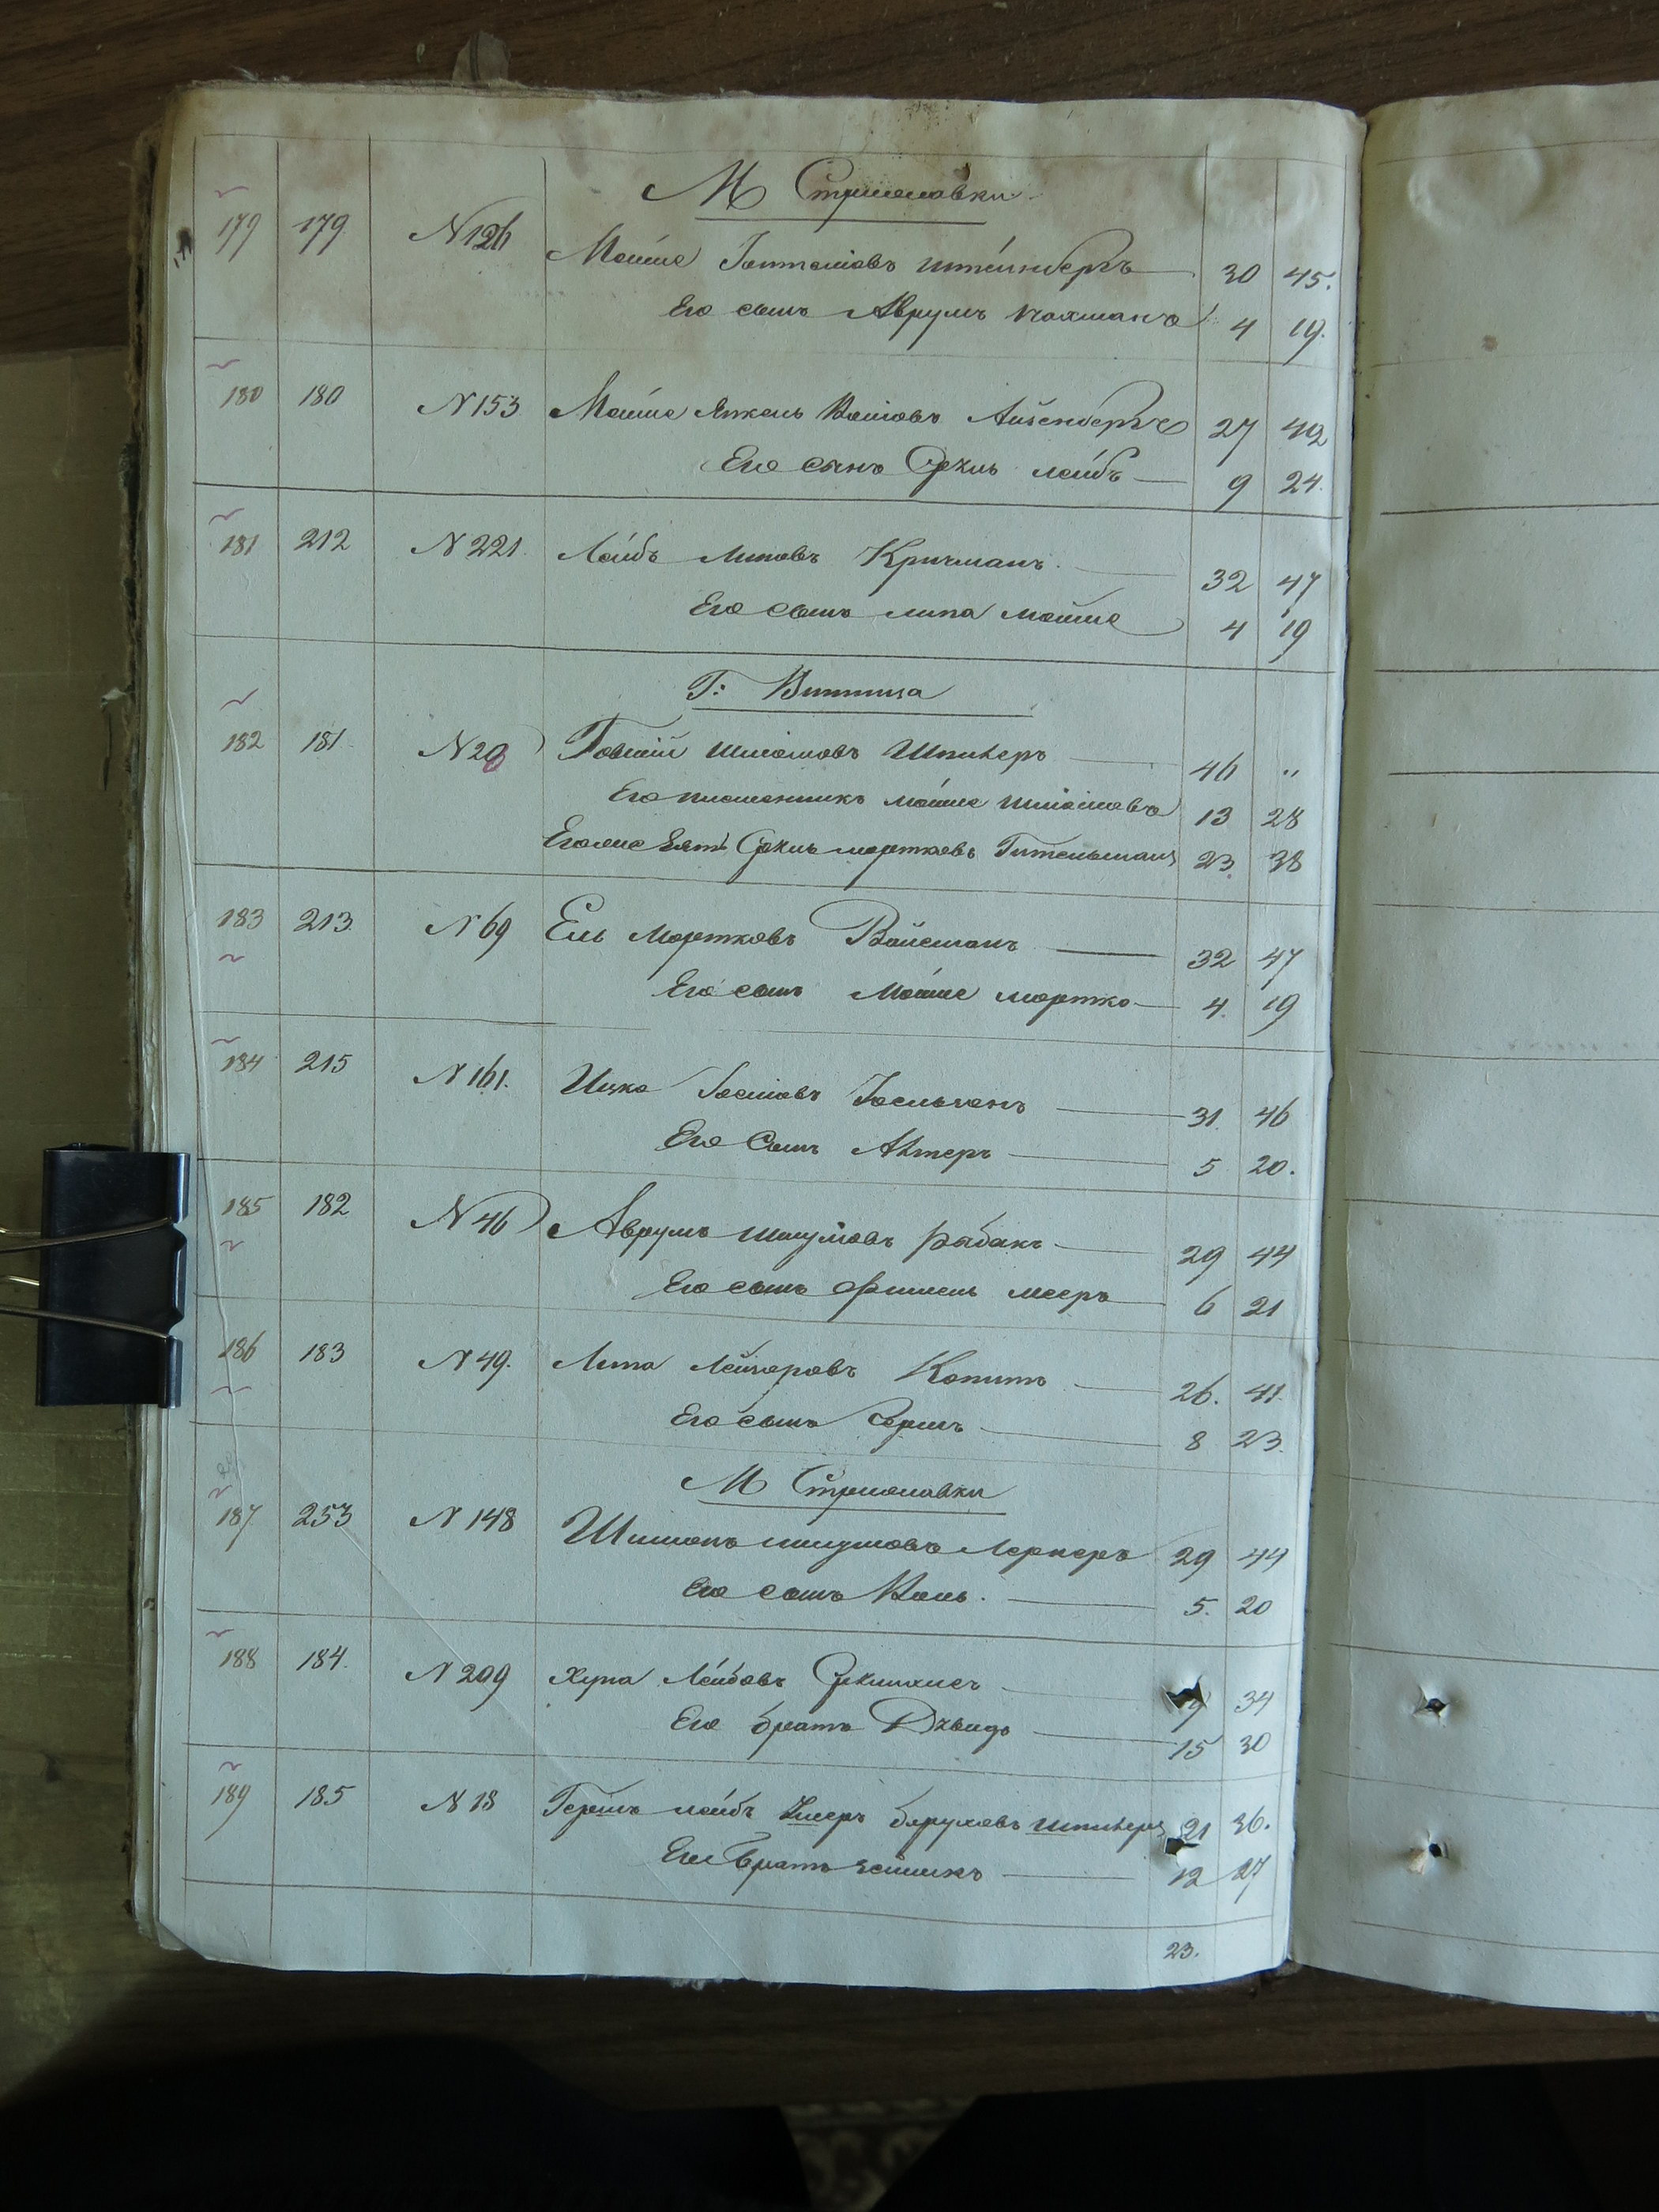 М Стрижавки
179 179 N 126 Мошко Гоптамовъ Штейнбергъ 30 45.
Его сынъ Аврумъ Нахманъ 4 19.
180 180 N 153 Мошко Янкель Айзенбергъ 27 42
Его сынъ Сруль Лейбъ 9 24.
181 212 N 221. Лейбъ Липовъ Кричманъ. 32 47
Его сынъ Липа Мошко 4 19
Г: Винница
182 181 N 20 Шліомовъ Шпигеръ 46 "
Его племянникъ Мошко Шліомовъ 13 28
Его же зять Сруль Мортковъ Гительманъ 23. 38
183 213. N 69 Ель Мортковъ Вайсманъ 32 47
Его сынъ Мошко Мортко 4. 19
184 215 N 161. Ицко Іосіовъ 31. 46
Его сынъ Алтеръ 5 20.
185 182 N 46 Аврумъ Шлумовъ Рабанъ 29 44
Его сынъ Фишель Мееръ 6 21
186 183 N 49. Липа Лейзоровъ Копитъ 26. 41.
Его сынъ Беришъ 8 23.
М Стрижавки
187. 253 N 148 Шимонъ Шлумовъ Лернеръ 29 44
Его сынъ Кель. 5. 20
188 184. N 209 Хуна Лейбовъ 9 34
Его братъ Дувидъ 15 30
189 185 N 18 Гершъ Лейбъ Баруховъ Шпигеръ 21 36.
Его братъ Зейликъ 12 27
23.